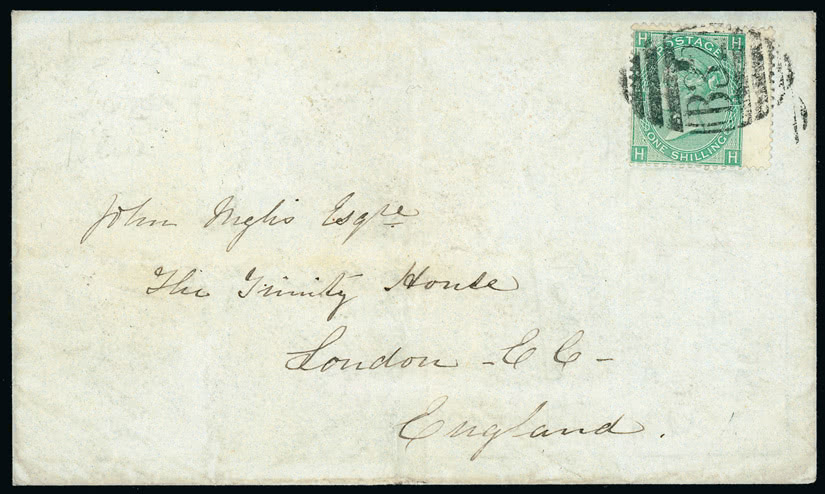 H H
POSTAGE
B32
ONE SHILLING
H H
John Inglis Esqre
The Trinity House
London - E C -
England.